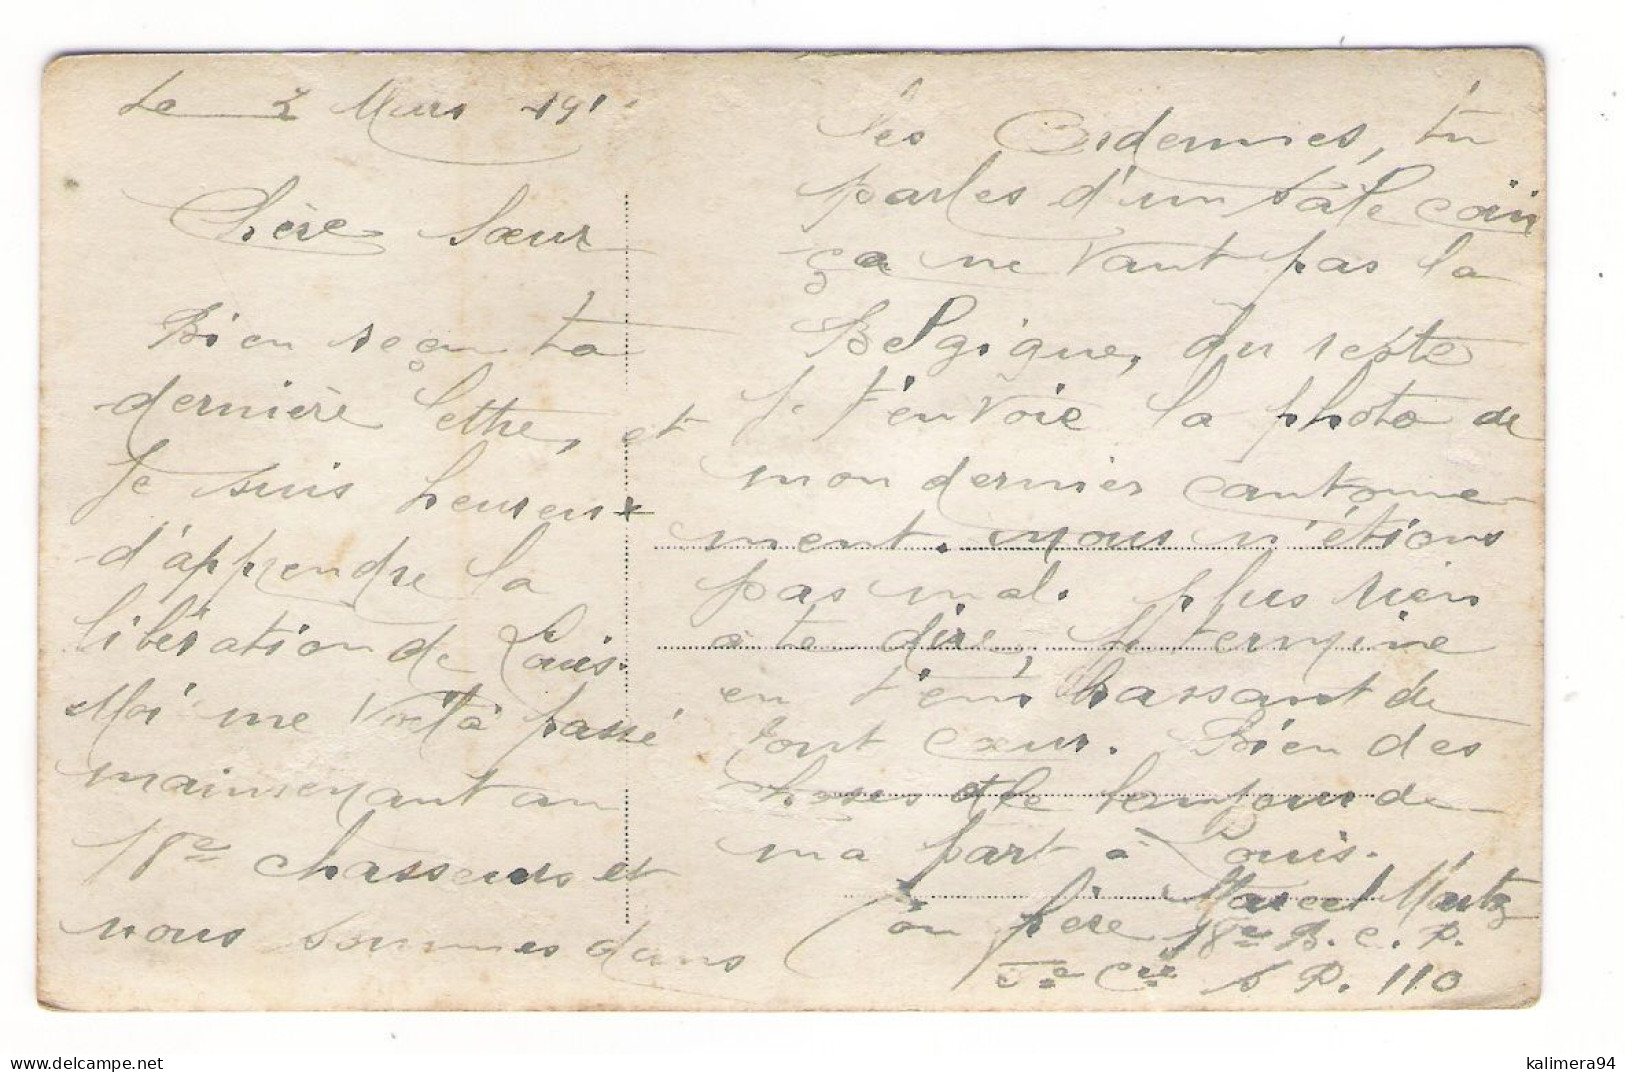 Le 2 Mars 191
Chère Sœur
Bien reçu ta
dernière lettre, et
Je suis heureux
d'apprendre la
libération de Louis.
Moi me voilà passé
maintenant au
18e chasseurs et
nous sommes dans
les Ardennes, tu
parles d'un sale coin
ça ne vaut pas la
Belgique, du reste
je t'envoie la photo de
mon dernier cantonne
ment. nous n'étions
pas mal. plus rien
a te dire, je termine
en t'embrassant de
tout cœur. Bien des
choses et le bonjour de
ma part à Louis.
Ton frère Marcel
18e B.C.P.
Cie S P. 110
delcampe.net
kalimera94